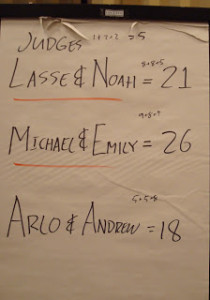 JUDGES =5
8+8+5
LASSE & NOAH = 21
MICHAEL & EMILY = 26
5+5+8
ARLO & ANDREW = 18